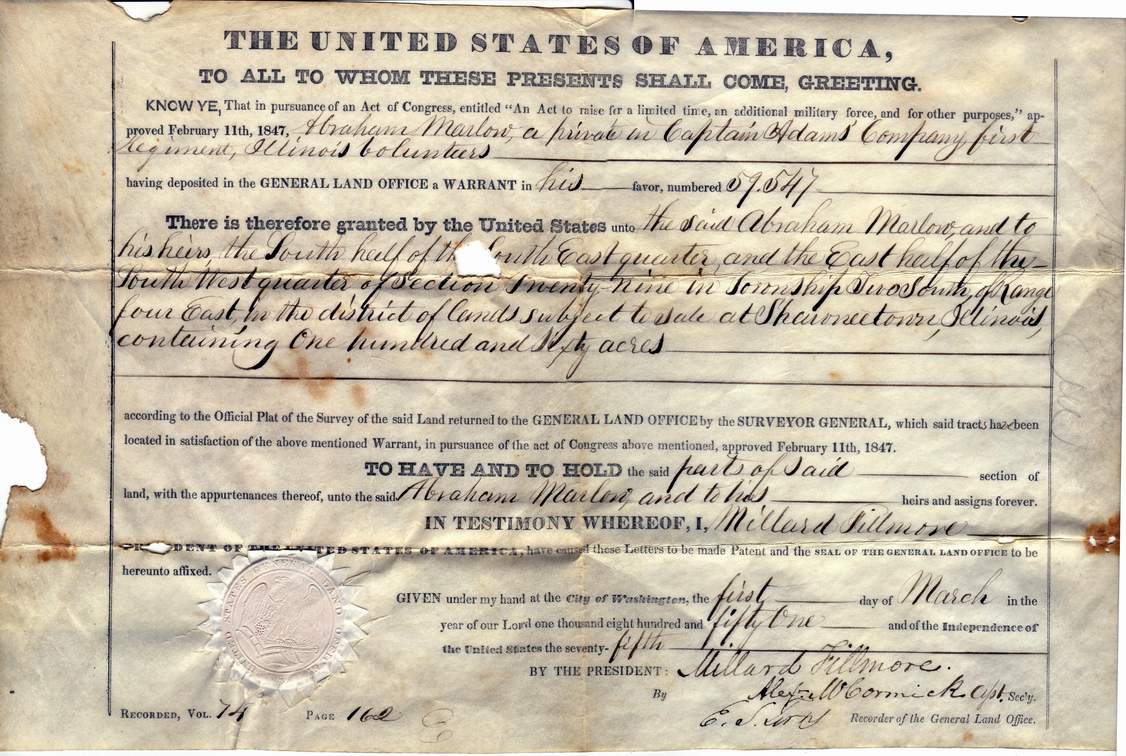 THE UNITED STATES OF AMERICA,
TO ALL TO WHOM THESE PRESENTS SHALL COME, GREETING.
KNOW YE, That in pursuance of an Act of Congress, entitled "An Act to raise for a limited time, an additional military force, and for other purposes," ap-
proved February 11th, 1847, Abraham Marlow, a private in Captain Adams' Company, first
Regiment, Illinois Volunteers
having deposited in the GENERAL LAND OFFICE a WARRANT in his favor, numbered 59.547
There is therefore granted by the United States unto the said Abraham Marlow and to
his heirs, the South half of the South East quarter, and the East half of the
South West quarter of Section Twenty-nine in Township Two South, of Range
four East, in the district of lands subject to sale at Shawneetown, Illinois,
containing One hundred and Sixty acres
according to the Official Plat of the Survey of the said Land returned to the GENERAL LAND OFFICE by the SURVEYOR GENERAL, which said tracts have been
located in satisfaction of the above mentioned Warrant, in pursuance of the act of Congress above mentioned, approved February 11th, 1847.
TO HAVE AND TO HOLD the said parts of said section of
land, with the appurtenances thereof, unto the said Abraham Marlow, and to his heirs and assigns forever.
IN TESTIMONY WHEREOF, I, Millard Fillmore
PRESIDENT OF THE UNITED STATES OF AMERICA, have caused these Letters to be made Patent and the SEAL OF THE GENERAL LAND OFFICE to be
hereunto affixed.
GIVEN under my hand at the City of Washington, the first day of March in the
year of our Lord one thousand eight hundred and fifty One and of the Independence of
the United States the seventy-fifth
BY THE PRESIDENT: Millard Fillmore.
By Alex. McCormick Asst. Sec'y.
RECORDED, VOL. 74 PAGE 162 E. S. Recorder of the General Land Office.